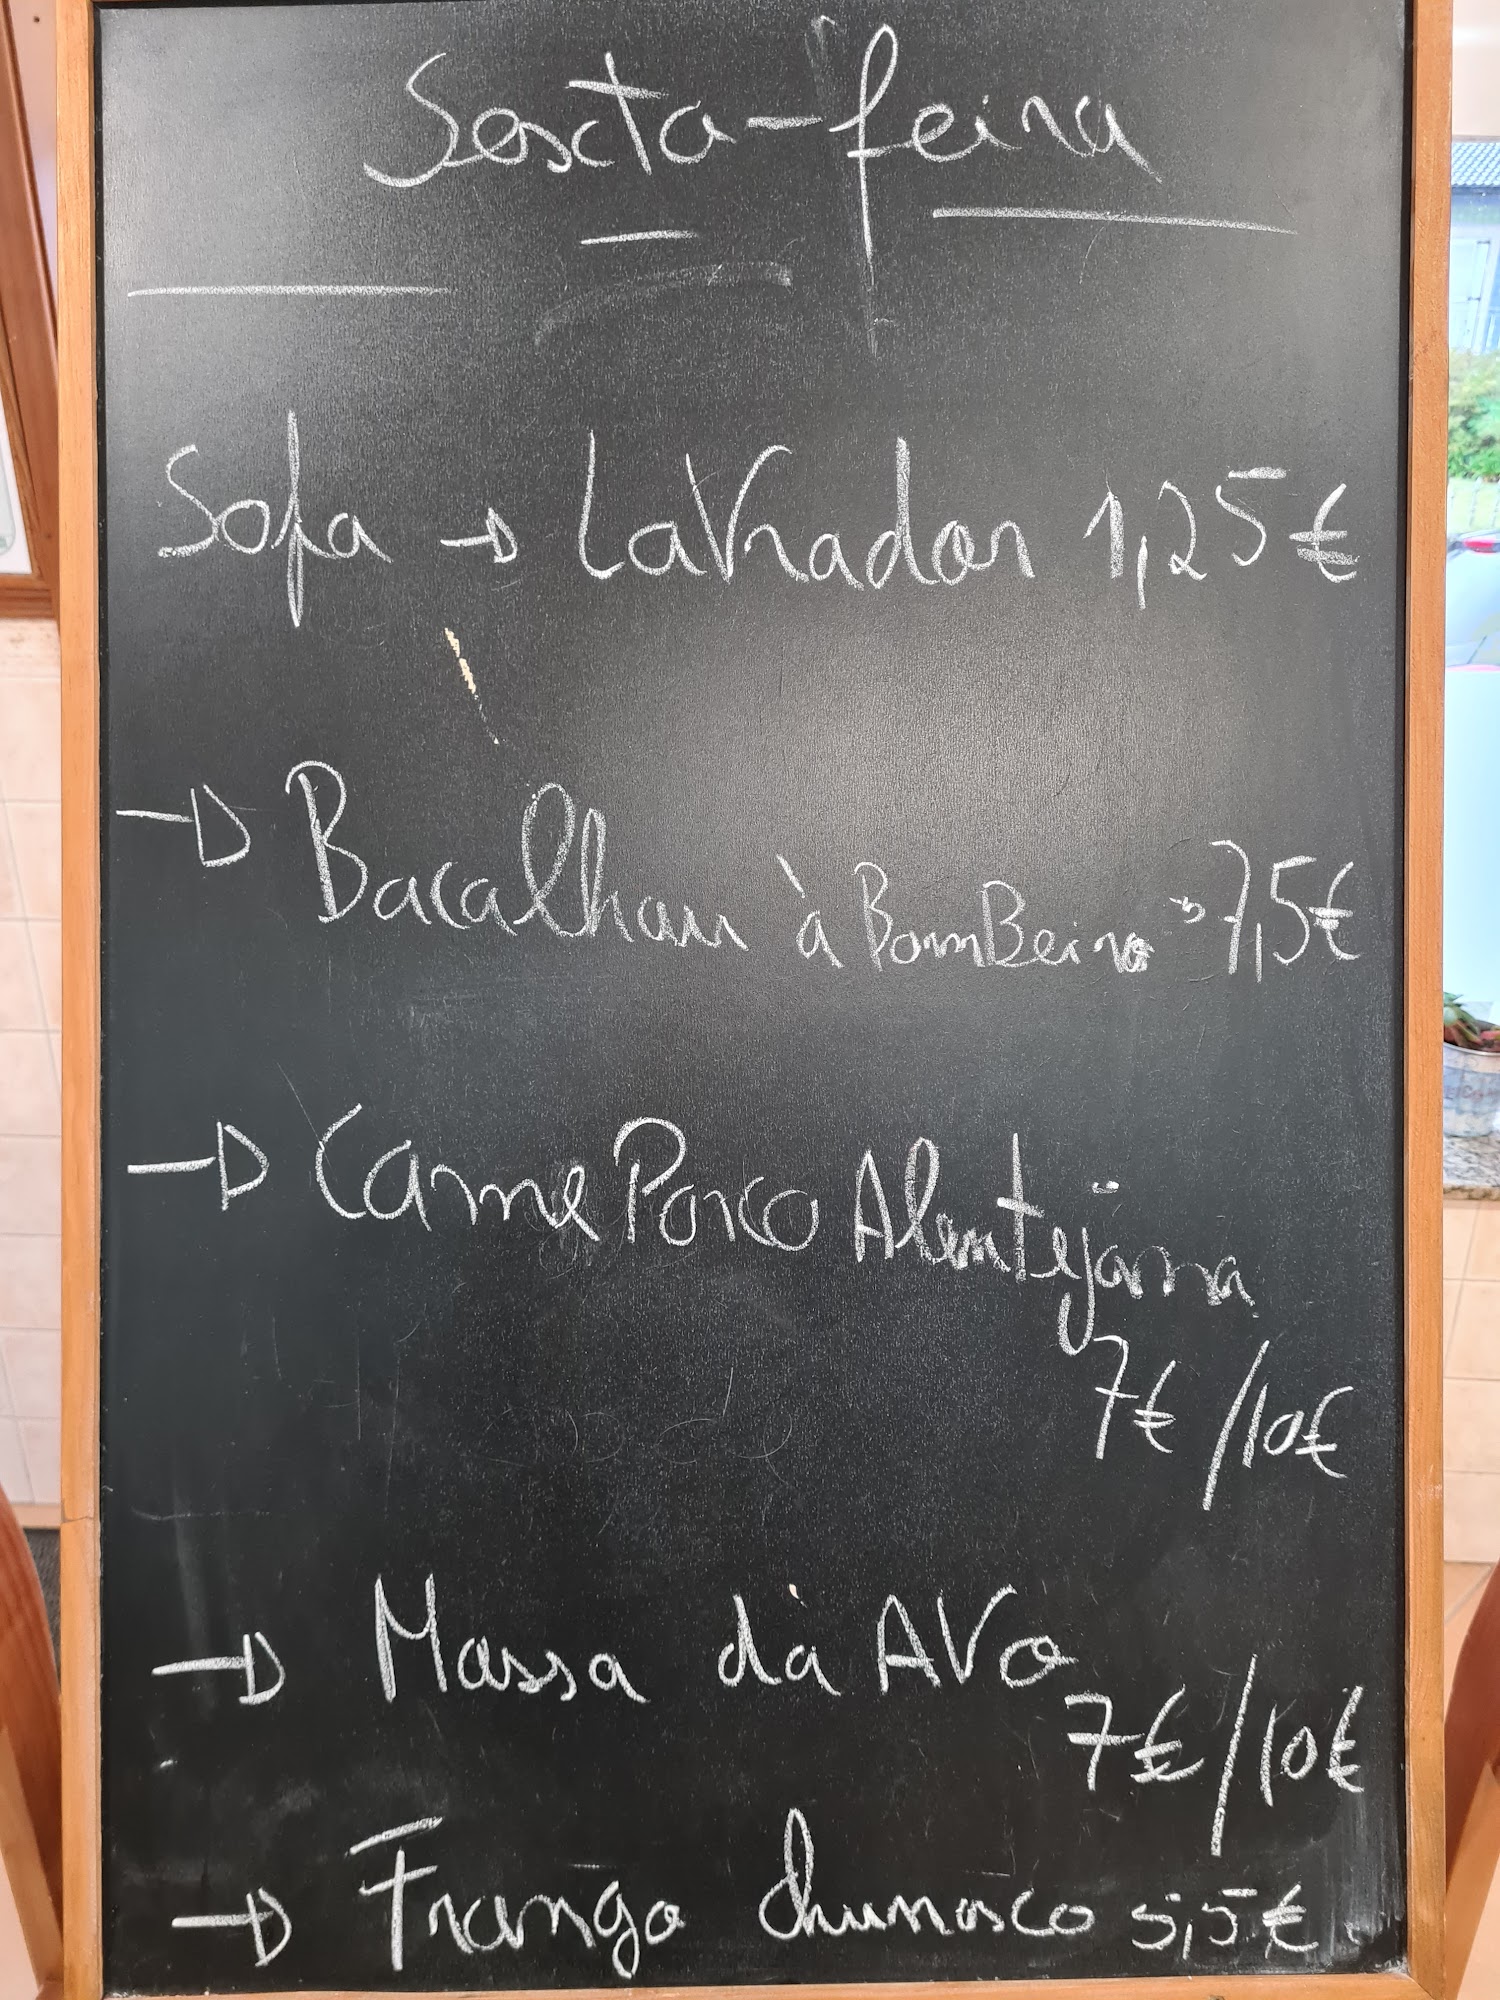 Sexta-feira
Sopa → Lavrador 1,25€
→ Bacalhau à BomBeiro → 7,5€
→ Carne Porco Alentejana
7€/10€
→ Massa dà AVo
7€/10€
→ Frango churrasco 5,5€